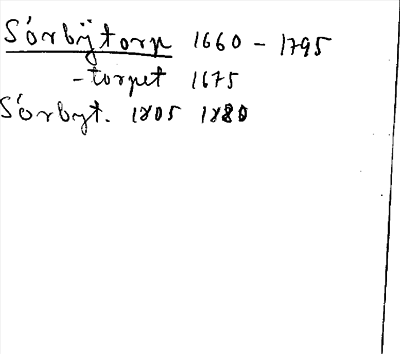 Sörbÿtorp 1660 - 1795
-torpet 1675
Sörbyt. 1805 1880